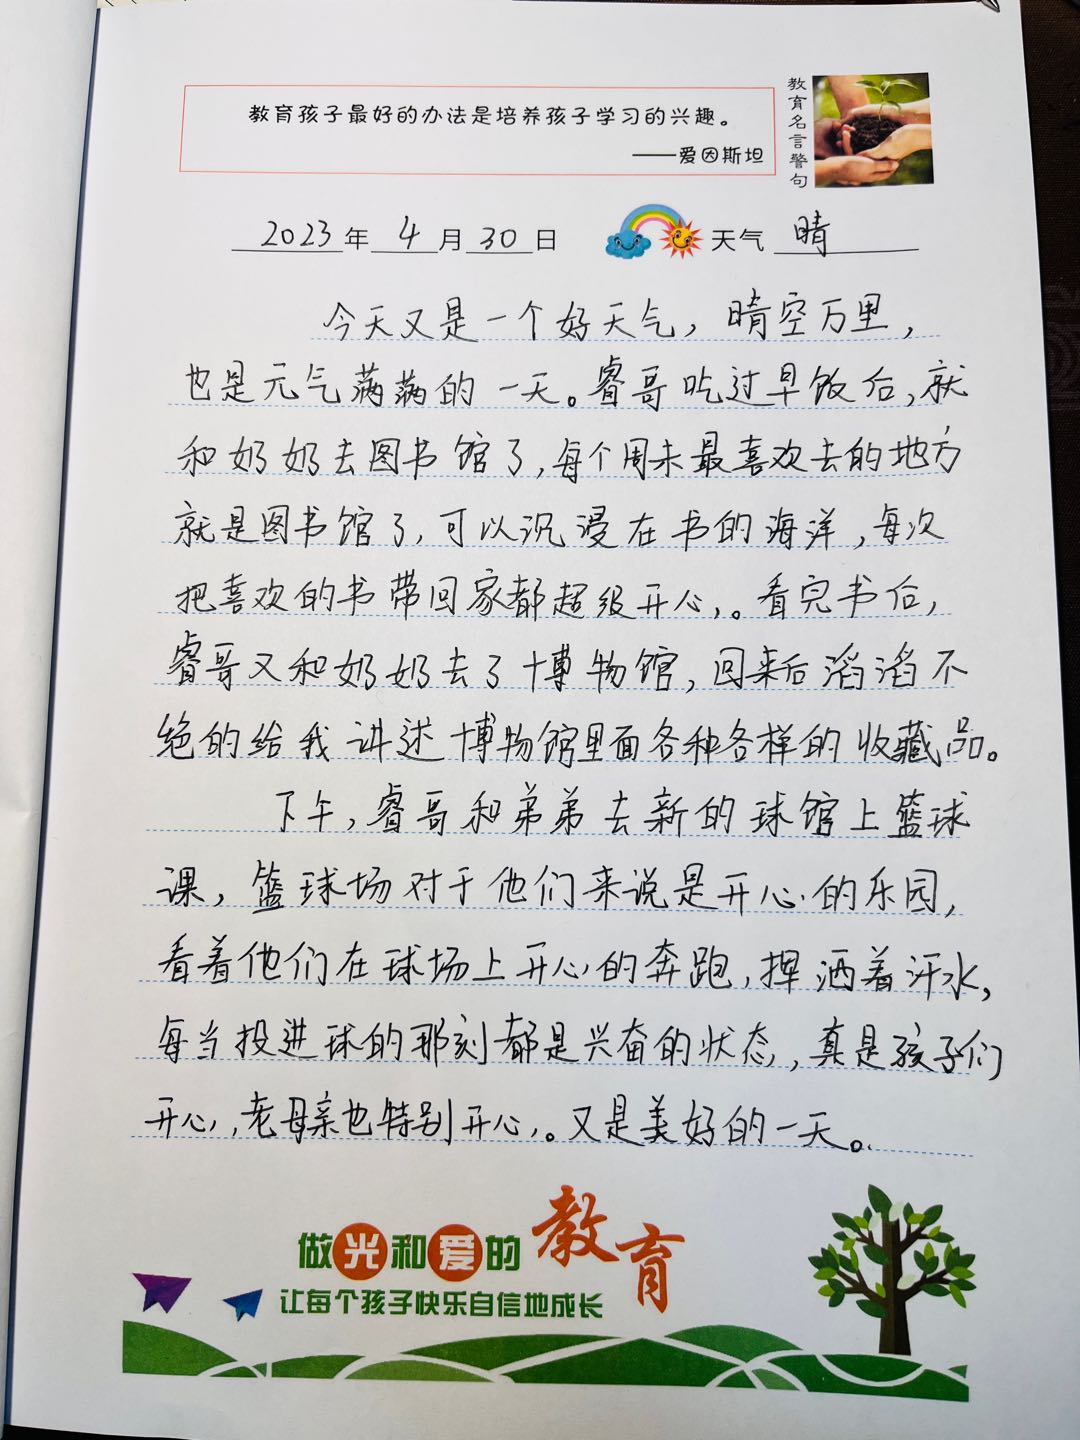 教育孩子最好的办法是培养孩子学习的兴趣。
——爱因斯坦
教育名言警句
2023年 4 月 30 日 天气 晴
今天又是一个好天气，晴空万里，
也是元气满满的一天。睿哥吃过早饭后，就
和奶奶去图书馆了，每个周末最喜欢去的地方
就是图书馆了，可以沉浸在书的海洋，每次
把喜欢的书带回家都超级开心，。看完书后，
睿哥又和奶奶去了博物馆，回来后滔滔不
绝的给我讲述博物馆里面各种各样的收藏品。
下午，睿哥和弟弟去新的球馆上篮球
课，篮球场对于他们来说是开心的乐园，
看着他们在球场上开心的奔跑，挥洒着汗水，
每当投进球的那刻都是兴奋的状态，真是孩子们
开心，老母亲也特别开心，。又是美好的一天。
做光和爱的教育
让每个孩子快乐自信地成长